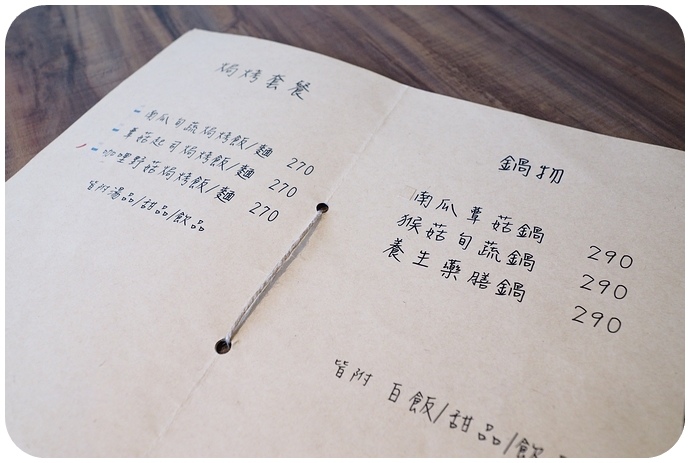 焗烤套餐
南瓜旬蔬焗烤飯/麵 270
蕈菇起司焗烤飯/麵 270
咖哩野菇焗烤飯/麵 270
皆附湯品/甜品/飲品
鍋物
南瓜蕈菇鍋 290
猴菇旬蔬鍋 290
養生藥膳鍋 290
皆附 白飯/甜品/飲